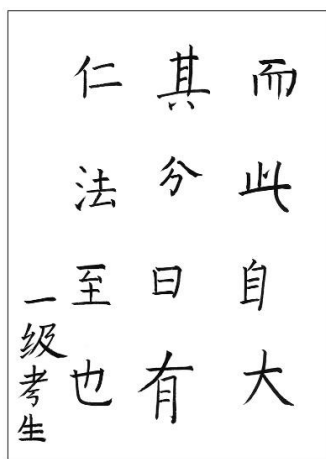 而此自大
其分日有
仁法至也
一级考生